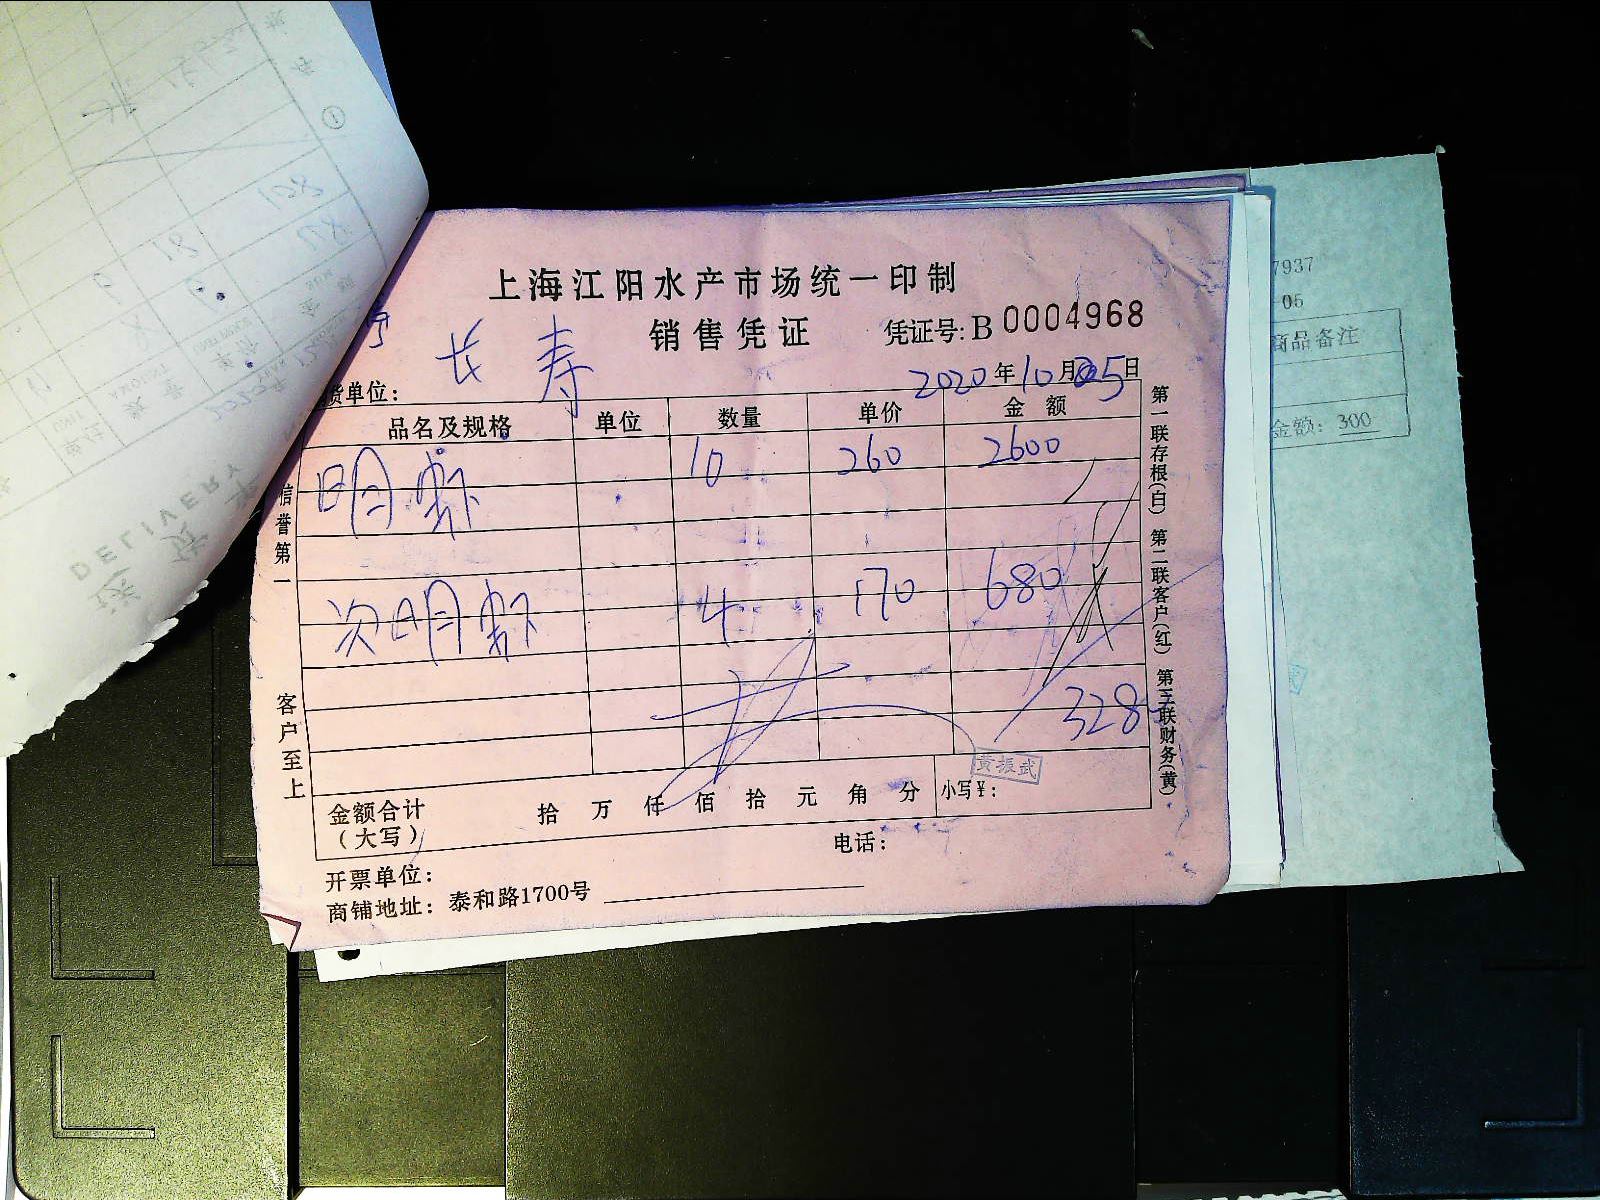 上海江阳水产市场统一印制
销售凭证 凭证号: B 0004968
货单位: 长寿 2020年10月25日
品名及规格 单位 数量 单价 金额
明虾 10 260 2600
次明虾 4 170 680
328
金额合计(大写) 拾 万 仟 佰 拾 元 角 分 小写¥:
黄振武
电话:
开票单位:
商铺地址: 泰和路1700号
信誉第一
客户至上
第一联存根(白) 第二联客户(红) 第三联财务(黄)
7937
-05
商品备注
金额: 300
DELIVERY